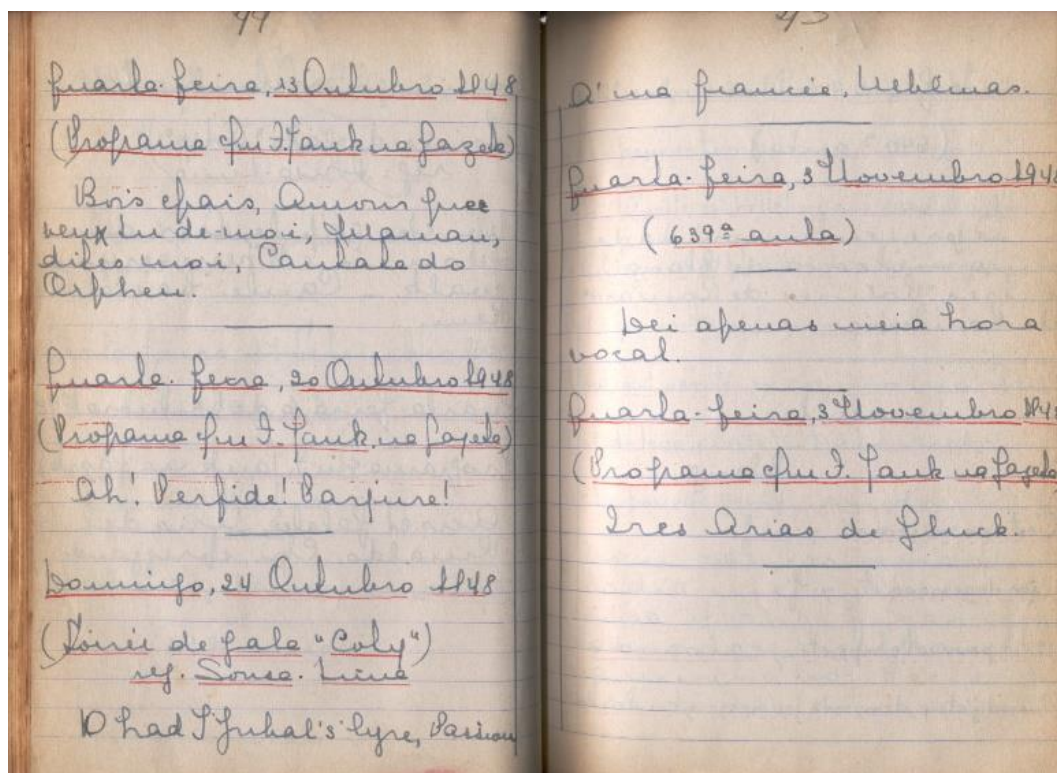 44
Quarta-feira, 13 Outubro 1948
(Programa Gui T. Tank na Gazeta)
Bois épais, Amour que
veux tu de moi, Quamau,
dites moi, Cantata do
Orpheu.
Quarta-feira, 20 Outubro 1948
(Programa Gui T. Tank na Gazeta)
Ah! Perfide! Parjure!
Domingo, 24 Outubro 1948
(Soirée de gala "Coty")
ref. Souza Lima
O had I Jubal's lyre, Passion
45
D'una francie, Ueblmas.
Quarta-feira, 3 Novembro 1948
(639ª aula)
Dei apenas meia hora
vocal.
Quarta-feira, 3 Novembro 194
(Programa Gui T. Tank na Gazeta
Tres Arias de Gluck.